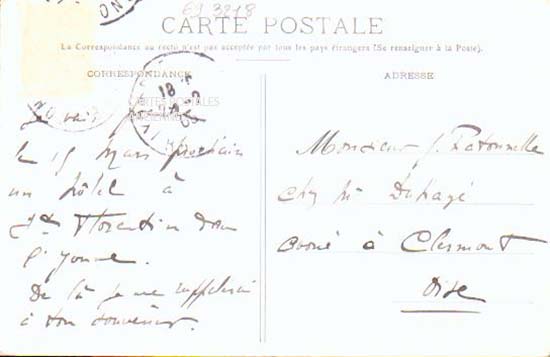 69 3218
CARTE POSTALE
La Correspondance au recto n'est pas acceptée par tous les pays étrangers (Se renseigner à la Poste).
CORRESPONDANCE
CARTES POSTALES
ANCIENNES
Je vais
le 15 Mars prochain
un hôtel à
St Florentin dans
l'Yonne.
De là je me rappellerai
à ton souvenir.
ADRESSE
Monsieur J. Ratonnelle
chez Me Dupagé
Avoué à Clermont
Oise